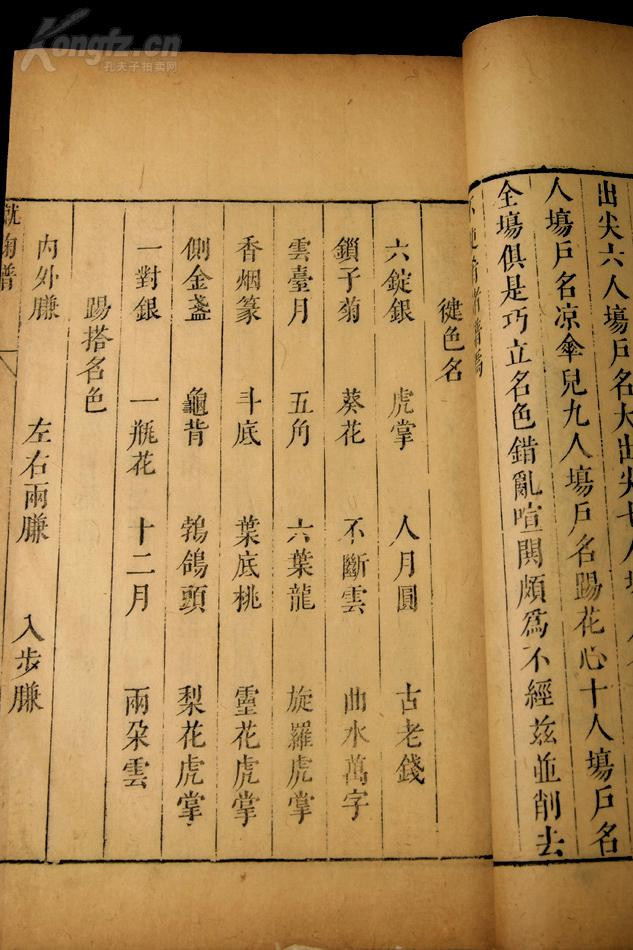 Kongfz.cn
孔夫子拍卖网
出尖六人塲戶名大出尖七人塲
人塲戶名凉傘兒九人塲戶名踢花心十人塲戶名
全塲俱是巧立名色錯亂喧鬨頗爲不經茲並削去
健色名
六錠銀 虎掌 人月圓 古老錢
鎖子菊 葵花 不斷雲 曲水萬字
雲臺月 五角 六葉龍 旋羅虎掌
香烟篆 斗底 葉底桃 靈花虎掌
側金盞 龜背 鵓鴿頭 梨花虎掌
一對銀 一瓶花 十二月 兩朶雲
踢搭名色
內外賺 左右兩賺 入步賺
蹴踘譜